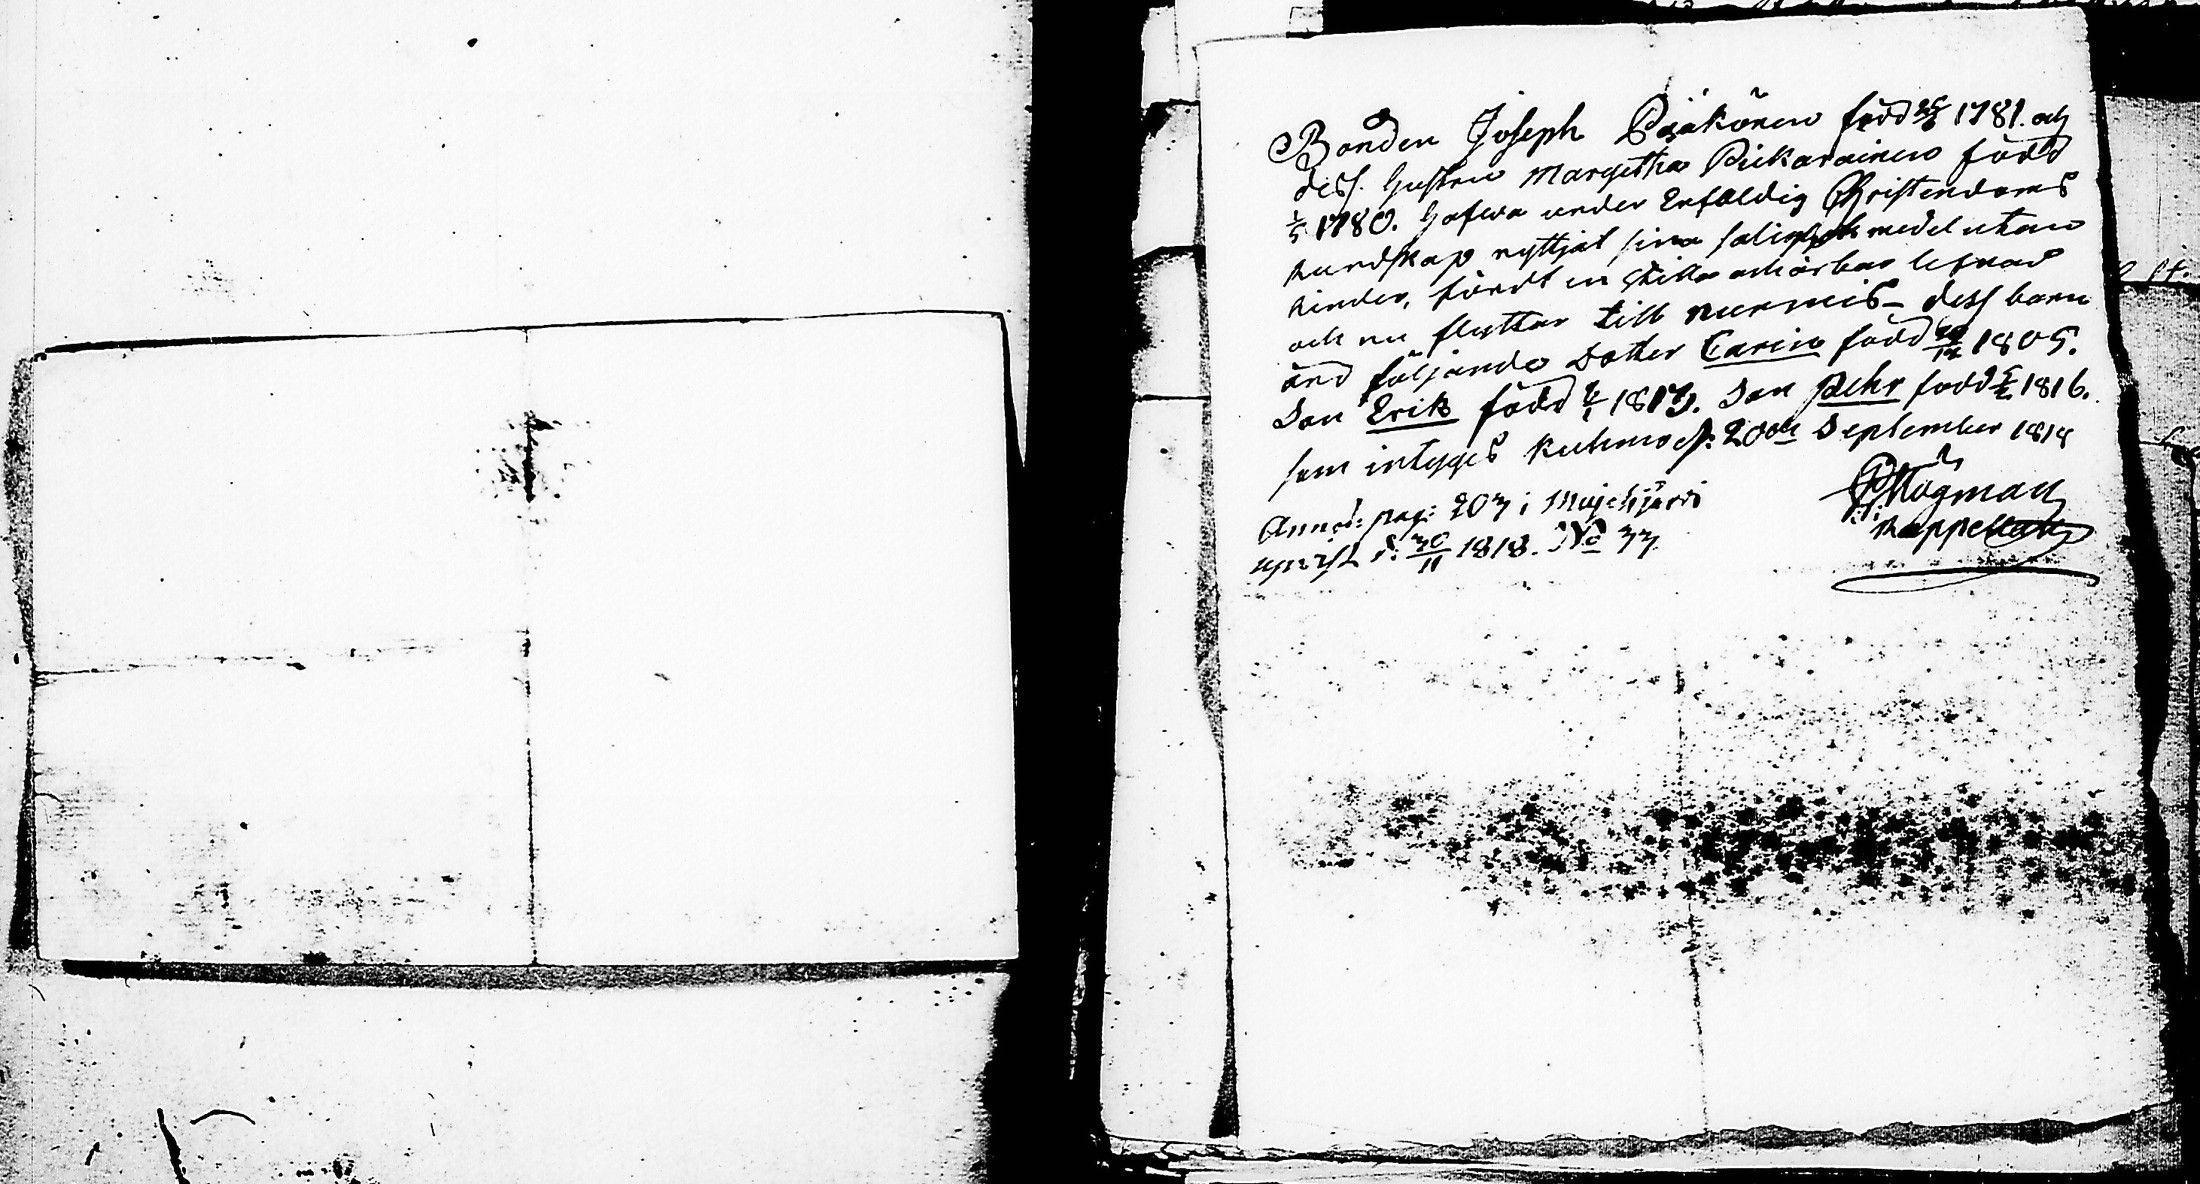 Bonden Joseph Pääkönen född 1781. och
dess Hustru Margetha Pickarainen född
1/5 1780. Hafwa under Enfaldig Christendoms
kundskap nyttjat sina salighets medel utan
hinder, fördt en stilla och ärbar lefnad
och nu flyttar till Nurmis - dess barn
äro följande Dotter Carin född 1805.
Son Erik född 1/1 1813. Son Pehr född 1816.
som intygas Kuhmo d. 20de September 1818
Högman
Kappellan
Annot: pag: 203 i Mujehjärvi
uppvist d: 30/11 1818. No 33